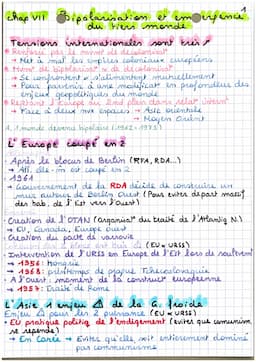 1
Chap VII Bipolarisation et émergence
du tiers monde
Tensions internationales sont très
* Renforcé par le mvmt de décolonisat°
→ Met à mal les empires coloniaux européens
* mvmt du bipolarisat° et de décolonisat°
→ Se confrontent et s'alimentent mutuellement
→ Pour parvenir à une modificat° en profondeur des
enjeux géopolitiques du monde
* Reptant l'Europe au 2nd plan dans relat° intern°
→ Place à deux nvx espaces → Asie orientale
→ Moyen Orient
A. 1 monde devenu bipolaire (1962-1973)
L'Europe coupé en 2
- Après le blocus de Berlin (RFA, RDA...)
→ All. elle-m est coupé en 2
- 1961
→ Gouvernement de la RDA décide de construire un
mur autour de Berlin Ouest (Pour éviter départ massif
des hab. de l'Est vers l'Ouest)
- Création de l'OTAN (organisat° du traité de l'Atlantiq N.)
→ EU, Canada, Europe ouest
- Création du pacte de varsovie
bloc est (EU ≠ URSS)
- Intervention de l'URSS en Europe de l'Est lors de soulèvem
→ 1956: Hongrie
→ 1968: printemps de prague Tchécoslovaquie
- A l'ouest: moment de la construct° européenne
→ 1957: Traité de Rome
L'Asie 1 enjeu de la G. froide
- Enjeu pour les 2 puissances (EU ≠ URSS)
- EU pratique politiq de l'endiguement (éviter que communism
se répende)
→ En Corée → Evitez qu'elle soit entièrement dominée
par communisme